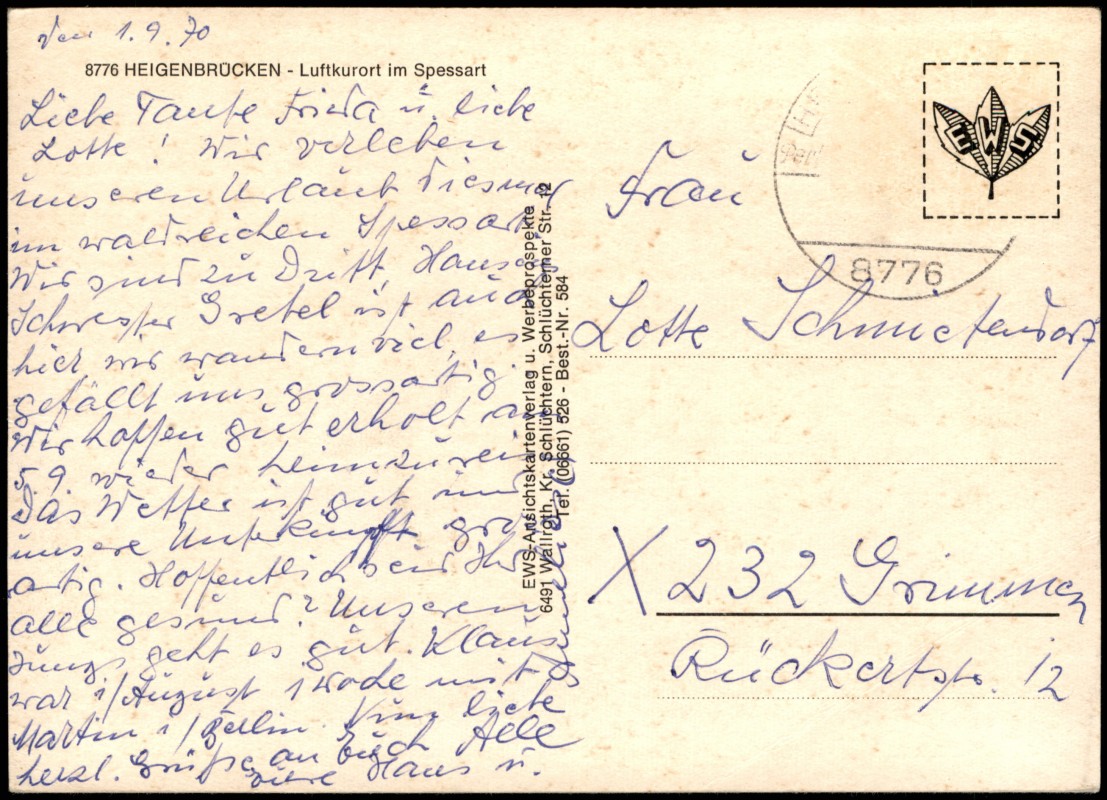 den 1.9.70
8776 HEIGENBRÜCKEN - Luftkurort im Spessart
Liebe Tante Frieda u. liebe
Lotte! Wir verleben
unseren Urlaub diesmal
im waldreichen Spessart.
Wir sind zu Dritt, Hans
Schwester Gretel ist auch
hier, wir wandern viel, es
gefällt uns grossartig.
Wir hoffen gut erholt am
5.9. wieder heimzureisen
Das Wetter ist gut und
unsere Unterkunft gross
artig. Hoffentlich seid Ihr
alle gesund? Unseren
Jungs geht es gut. Klaus
war i/August 1 Woche mit
Martin i/Berlin. Nun liebe
herzl. Grüße an Euch Alle
Eure Hans u.
EWS-Ansichtskartenverlag u. Werbeprospekte
6491 Wallroth, Kr. Schlüchtern, Schlüchterner Str. 12
Tel. (06661) 526 - Best.-Nr. 584
EWS
8776
Frau
Lotte Schmietendorf
X 232 Grimmen
Rückertstr. 12